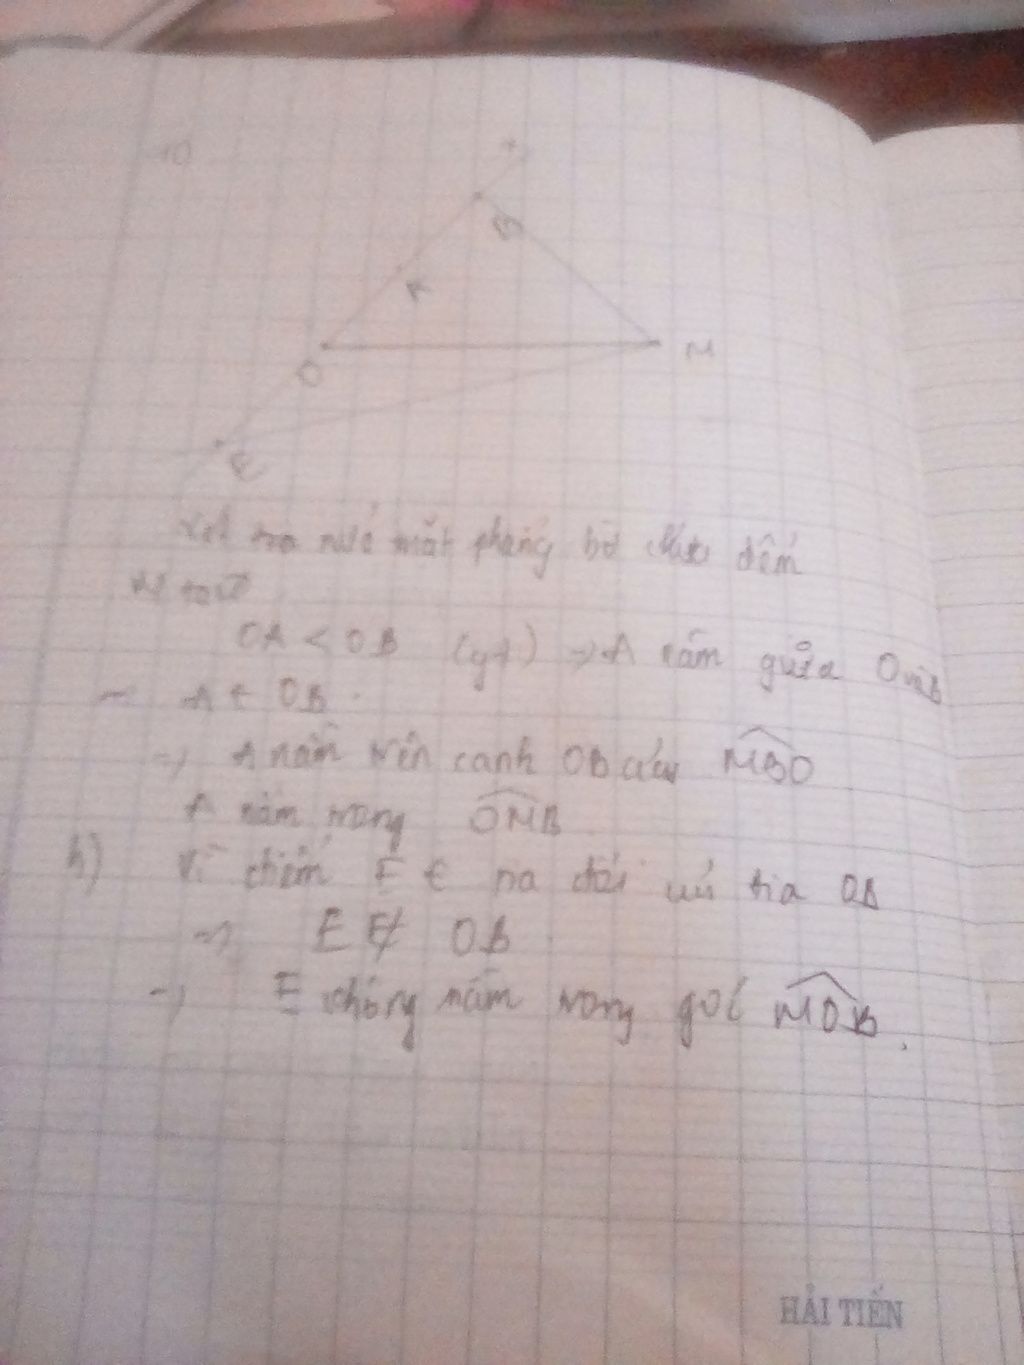 B
A
O
M
E
mặt phẳng bờ chứa điểm
M
OA < OB (gt) => A nằm giữa O và B
A ∈ OB
=> A nằm trên cạnh OB của MBO
A nằm trong OMB
b) Vì điểm E ∈ tia đối với tia OB
=> E ∉ OB
=> E không nằm trong goc MOB.
HẢI TIẾN